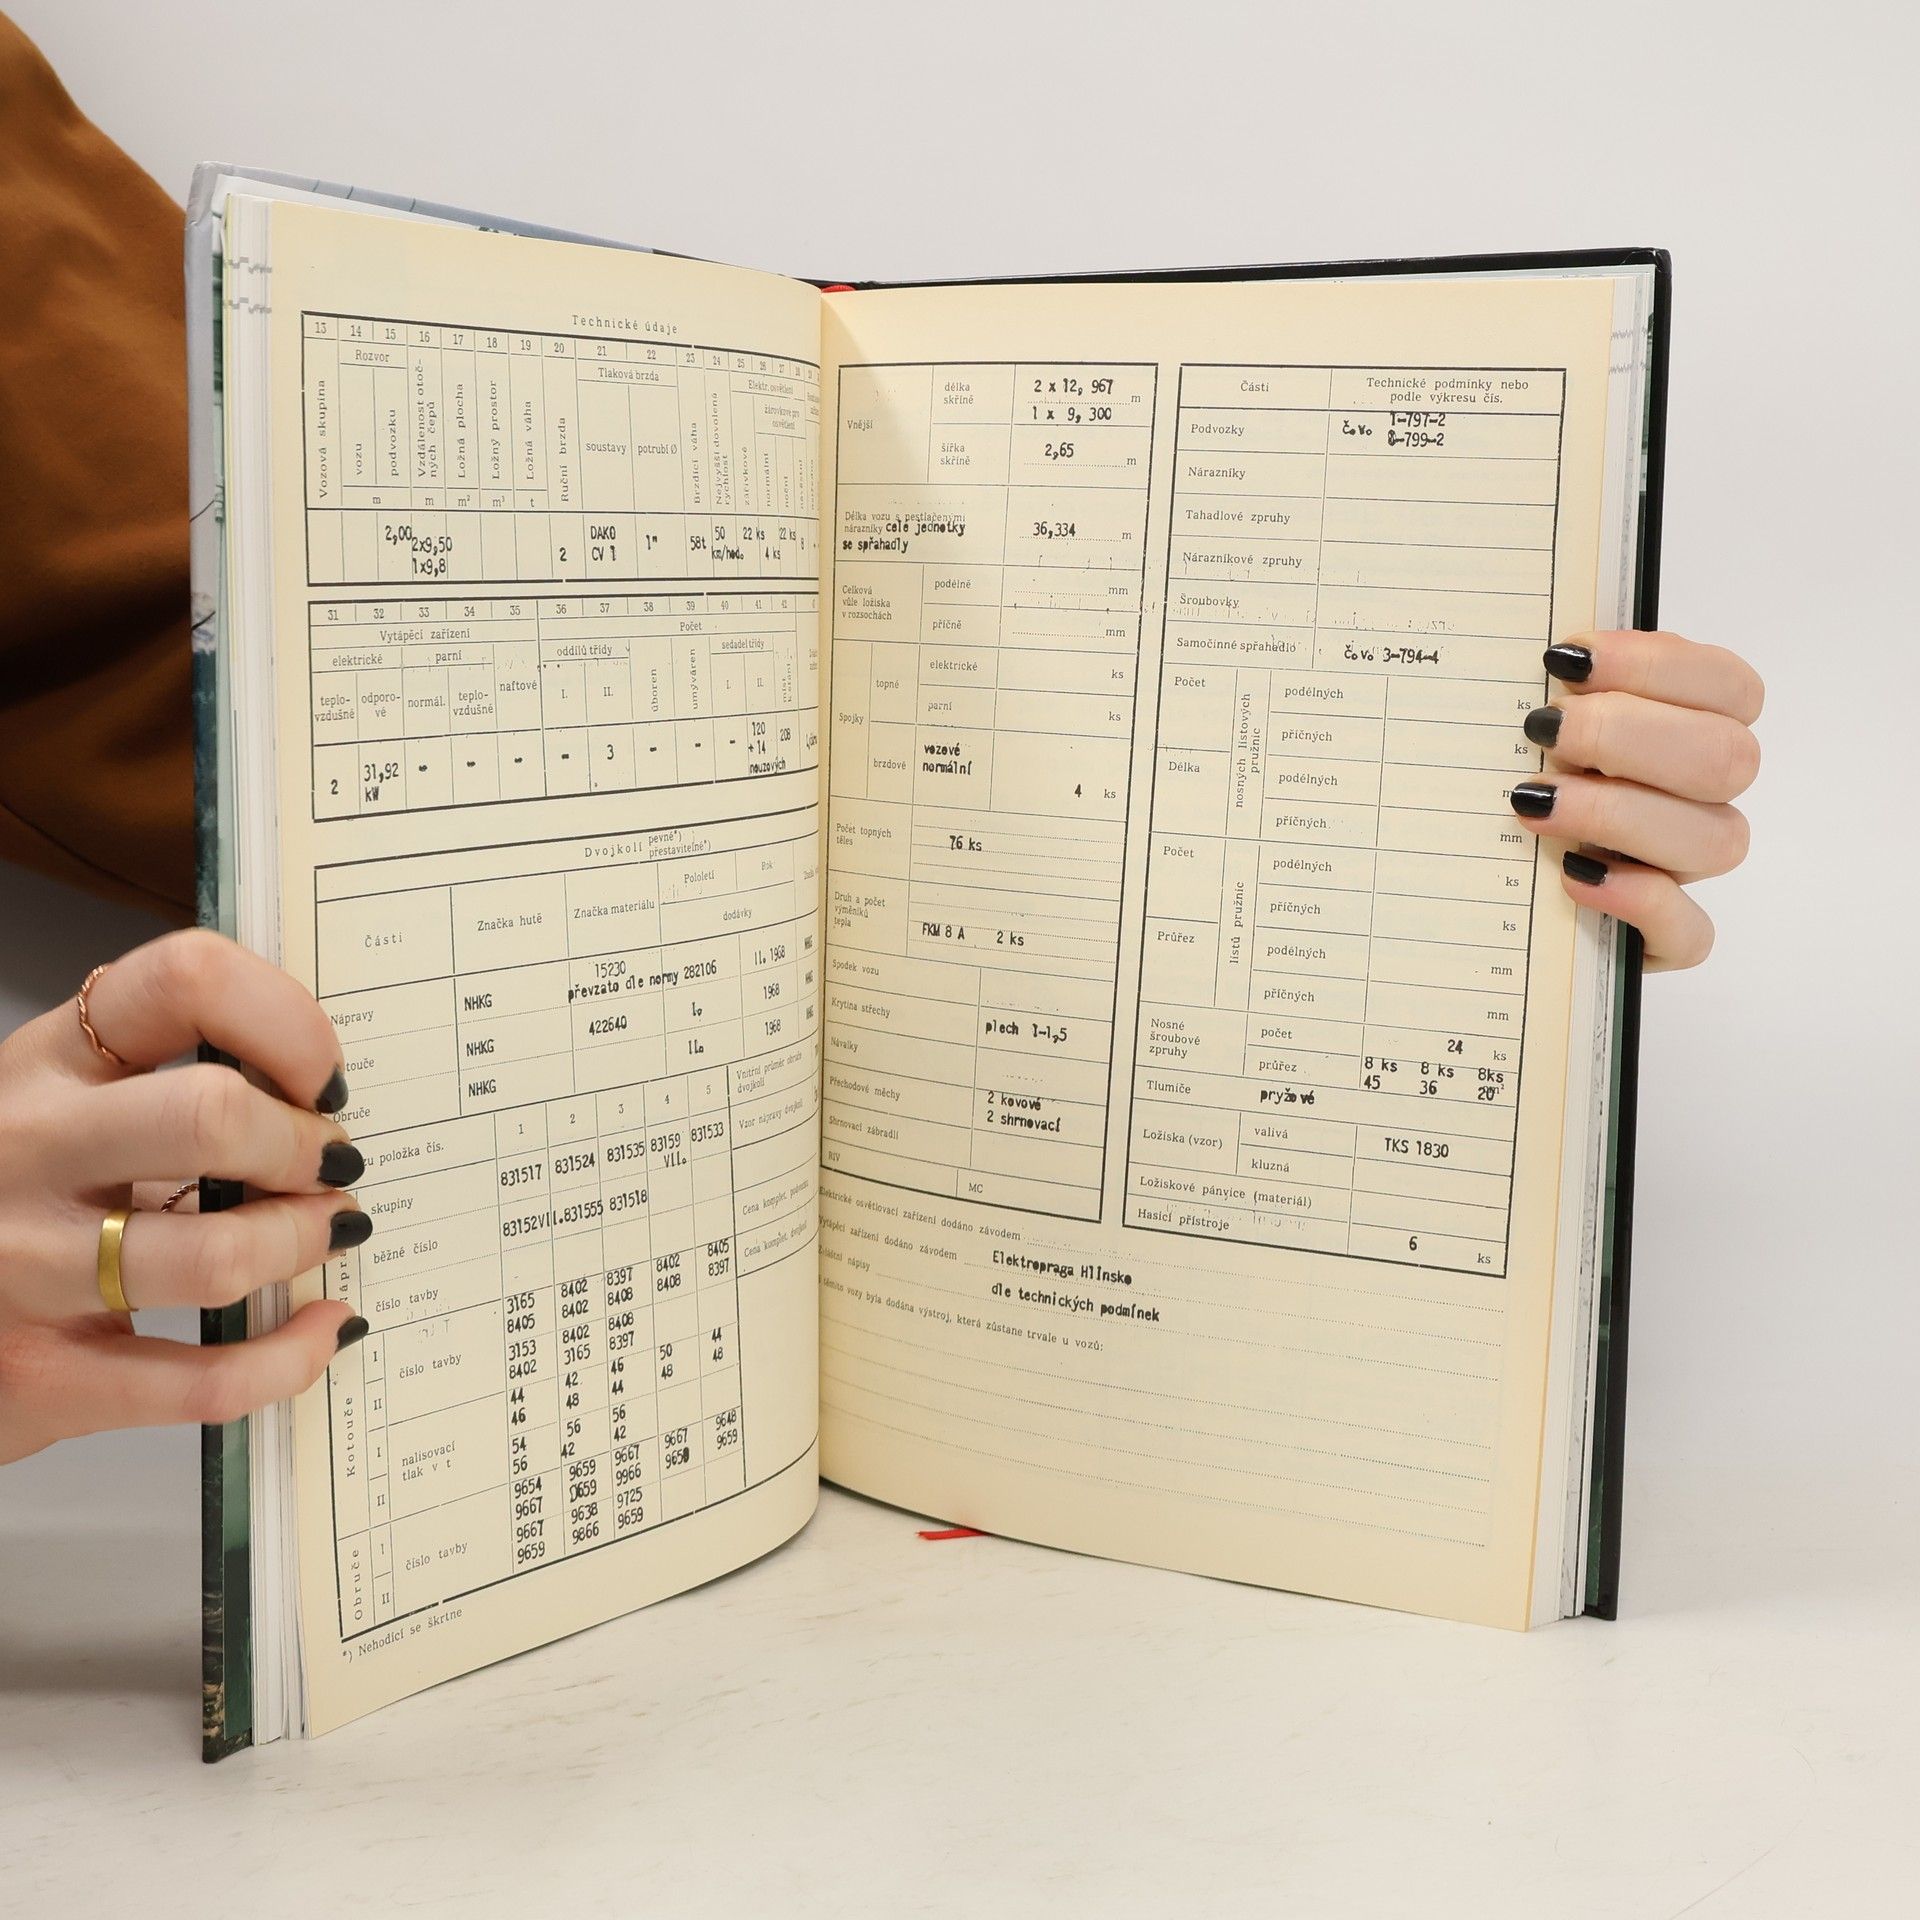 Technické údaje
13 14 15 16 17 18 19 20 21 22 23 24 25 26 27 28
Rozvor
Tlaková brzda
Elektr. osvětlení
žárovkové pro
osvětlení
Vozová skupina
vozu
podvozku
Vzdálenost otoč-
ných čepů
Ložná plocha
Ložný prostor
Ložná váha
Ruční brzda
soustavy
potrubí Ø
Brzdicí váha
Nejvyšší dovolená
rychlost
zářivkové
normální
noční
m m m² m³ t
2,00 2x9,50 2 DAKO 1" 58t 50 22 ks 22 ks 8
1x9,8 CV 1 km/hod. 4 ks
31 32 33 34 35 36 37 38 39 40 41 42
Vytápěcí zařízení
Počet
elektrické parní oddílů třídy sedadel třídy
teplo-
vzdušné
odporo-
vé
normál.
teplo-
vzdušné
naftové
I. II.
úboren
umýváren
I. II.
míst
k stání
2 31,92 - - - - 3 - - - 120 208
kW + 14
nouzových
Dvojkolí pevné*)
přestavitelné*)
Části Značka hutě Značka materiálu Pololetí Rok
dodávky
Nápravy NHKG 15230 II. 1968
převzato dle normy 282106
NHKG 422640 I. 1968
Obruče NHKG II. 1968
položka čís. 1 2 3 4 5
Vnitřní průměr obruče
dvojkolí
Vzor nápravy dvojkolí
skupiny 831517 831524 831535 83159 831533
VII.
běžné číslo 83152VII. 831555 831518
Cena komplet. podvozku
Cena komplet. dvojkolí
číslo tavby
3165 8402 8397 8402 8405
8405 8402 8408 8408 8397
Kotouče
I číslo tavby
II
3153 8402 8408
8402 3165 8397
44 42 46 50 44
46 48 44 48 48
I nalisovací
tlak v t
II
54 56 56
56 42 42
9654 9659 9667 9667 9648
9667 0659 9966 9658 9659
Obruče
I číslo tavby
II
9667 9638 9725
9659 9866 9659
*) Nehodící se škrtne
Vnější
délka
skříně
2 x 12, 967 m
1 x 9, 300
šířka
skříně
2,65 m
Délka vozu s nestlačenými
nárazníky celé jednotky
se spřahadly
36,334 m
Celková
vůle ložiska
v rozsochách
podélně mm
příčně mm
Spojky
topné
elektrické ks
parní ks
brzdové
vozové
normální
4 ks
Počet topných
těles
76 ks
Druh a počet
výměníků
tepla
FKM 8 A 2 ks
Spodek vozu
Krytina střechy plech 1-1,5
Návalky
Přechodové měchy 2 kovové
2 shrnovací
Shrnovací zábradlí
RIV MC
Elektrické osvětlovací zařízení dodáno závodem
Vytápěcí zařízení dodáno závodem Elektropraga Hlinsko
nápisy dle technických podmínek
vozy byla dodána výstroj, která zůstane trvale u vozů:
Části
Technické podmínky nebo
podle výkresu čís.
Podvozky č.v. 1-797-2
-799-2
Nárazníky
Tahadlové zpruhy
Nárazníkové zpruhy
Šroubovky
Samočinné spřahadlo č.v. 3-794-4
Počet
Délka
nosných listových
pružnic
podélných ks
příčných ks
podélných
příčných mm
Počet
Průřez
listů pružnic
podélných ks
příčných ks
podélných mm
příčných mm
Nosné
šroubové
zpruhy
počet 24 ks
průřez 8 ks 8 ks 8ks
45 36 20
Tlumiče pryžové
Ložiska (vzor)
valivá TKS 1830
kluzná
Ložiskové pánvice (materiál)
Hasicí přístroje 6 ks